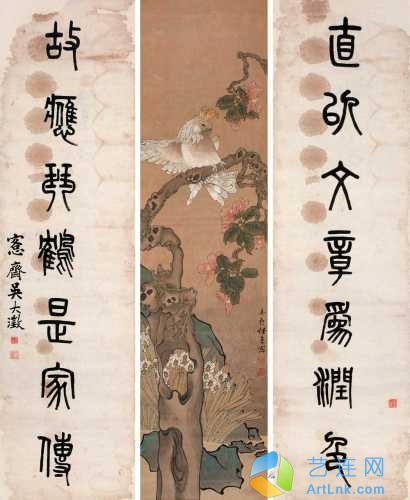 直以文章爲潤色
故應琴鶴是家傳
愙齋吳大澂
艺连网
ArtLnk.com